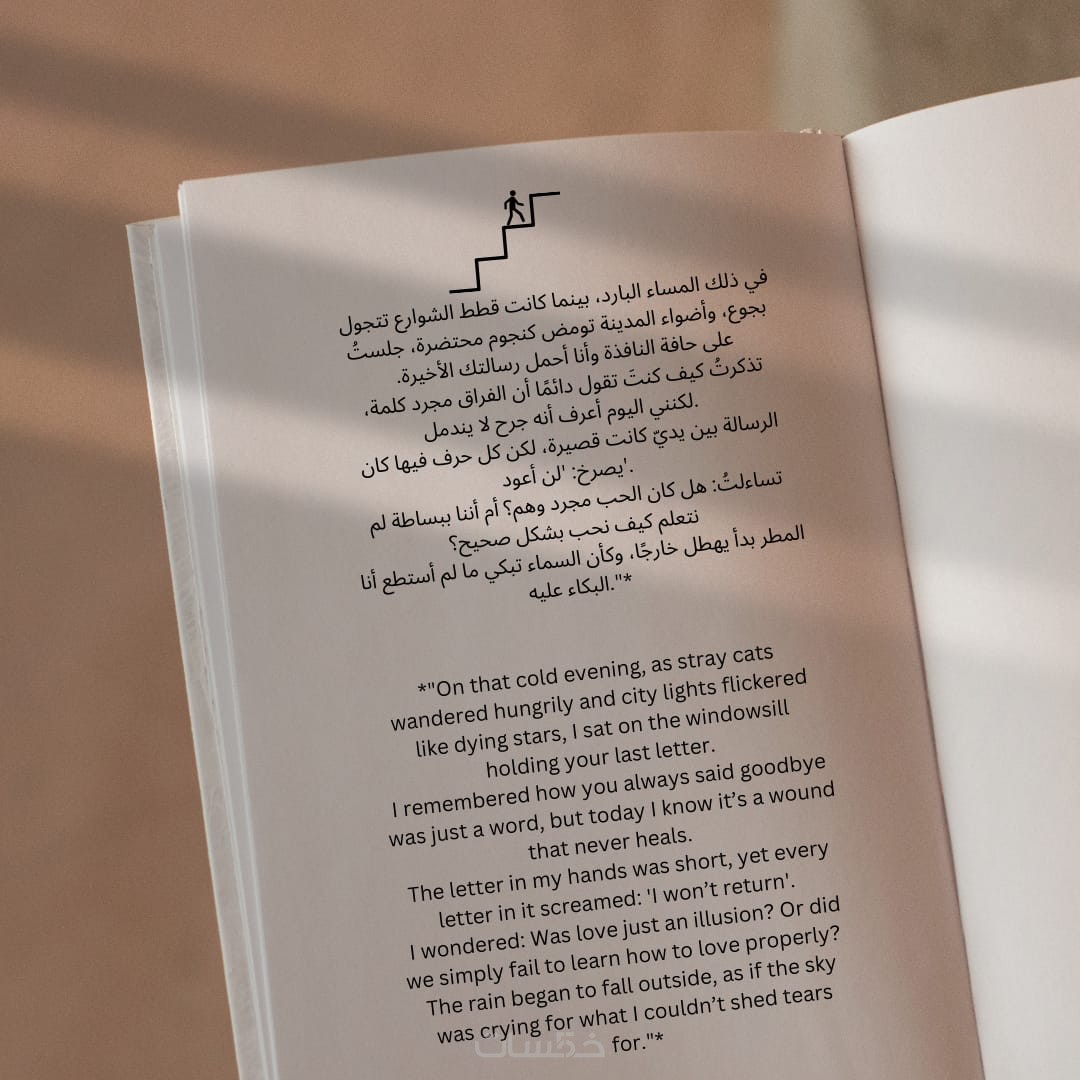 في ذلك المساء البارد، بينما كانت قطط الشوارع تتجول
بجوع، وأضواء المدينة تومض كنجوم محتضرة، جلستُ
على حافة النافذة وأنا أحمل رسالتك الأخيرة.
تذكرتُ كيف كنتَ تقول دائمًا أن الفراق مجرد كلمة،
.لكنني اليوم أعرف أنه جرح لا يندمل
الرسالة بين يديّ كانت قصيرة، لكن كل حرف فيها كان
.'يصرخ: 'لن أعود
تساءلتُ: هل كان الحب مجرد وهم؟ أم أننا ببساطة لم
نتعلم كيف نحب بشكل صحيح؟
المطر بدأ يهطل خارجًا، وكأن السماء تبكي ما لم أستطع أنا
*".البكاء عليه
*"On that cold evening, as stray cats
wandered hungrily and city lights flickered
like dying stars, I sat on the windowsill
holding your last letter.
I remembered how you always said goodbye
was just a word, but today I know it’s a wound
that never heals.
The letter in my hands was short, yet every
letter in it screamed: 'I won’t return'.
I wondered: Was love just an illusion? Or did
we simply fail to learn how to love properly?
The rain began to fall outside, as if the sky
was crying for what I couldn’t shed tears
for."*
خمسات